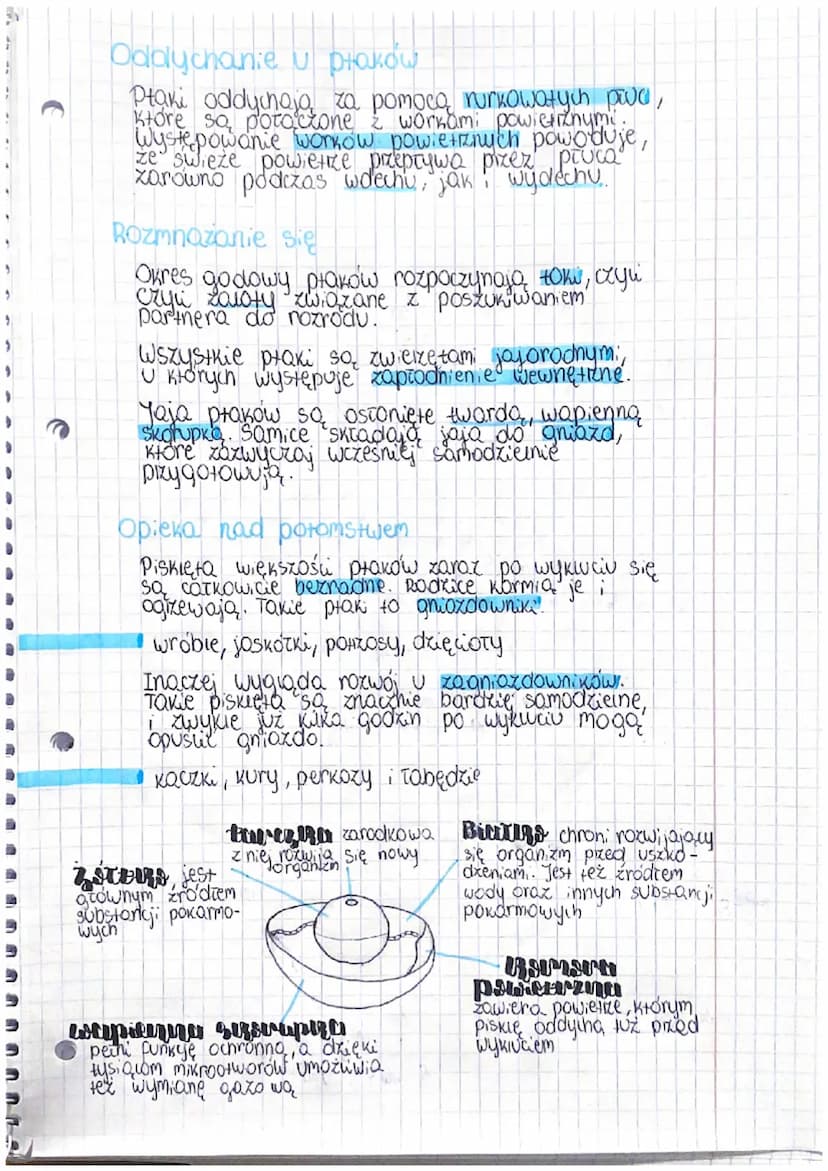 Oddychanie u ptaków
Ptaki oddychają za pomocą rurkowatych płuc,
które są połączone z workami powietrznymi.
Występowanie worków powietrznych powoduje,
że świeże powietrze przepływa przez płuca
zarówno podczas wdechu, jak i wydechu.
Rozmnażanie się
Okres godowy ptaków rozpoczynają toki, czyli
czyli zaloty związane z poszukiwaniem
partnera do rozrodu.
Wszystkie ptaki są zwierzętami jajorodnymi,
u których występuje zapłodnienie wewnętrzne.
Jaja ptaków są osłonięte twardą, wapienną
skorupką. Samice składają jaja do gniazd,
które zazwyczaj wcześniej samodzielnie
przygotowują.
Opieka nad potomstwem
Pisklęta większości ptaków zaraz po wykluciu się
są całkowicie bezradne. Rodzice karmią je i
ogrzewają. Takie ptaki to gniazdowniki.
wróble, jaskółki, pokrzosy, dzięcioły
Inaczej wygląda rozwój u zagniazdowników.
Takie pisklęta są znacznie bardziej samodzielne,
i zwykle już kilka godzin po wykluciu mogą
opuścić gniazdo.
kaczki, kury, perkozy i łabędzie
tarczka zarodkowa
z niej rozwija się nowy
organizm
Białko chroni rozwijający
się organizm przed uszko-
dzeniami. Jest też źródłem
wody oraz innych substancji
pokarmowych
żółtko jest
głównym źródłem
substancji pokarmo-
wych
komora
powietrzna
zawiera powietrze, którym
pisklę oddycha tuż przed
wykluciem
wapienna skorupka
pełni funkcję ochronną, a dzięki
tysiącom mikrootworów umożliwia
też wymianę gazową